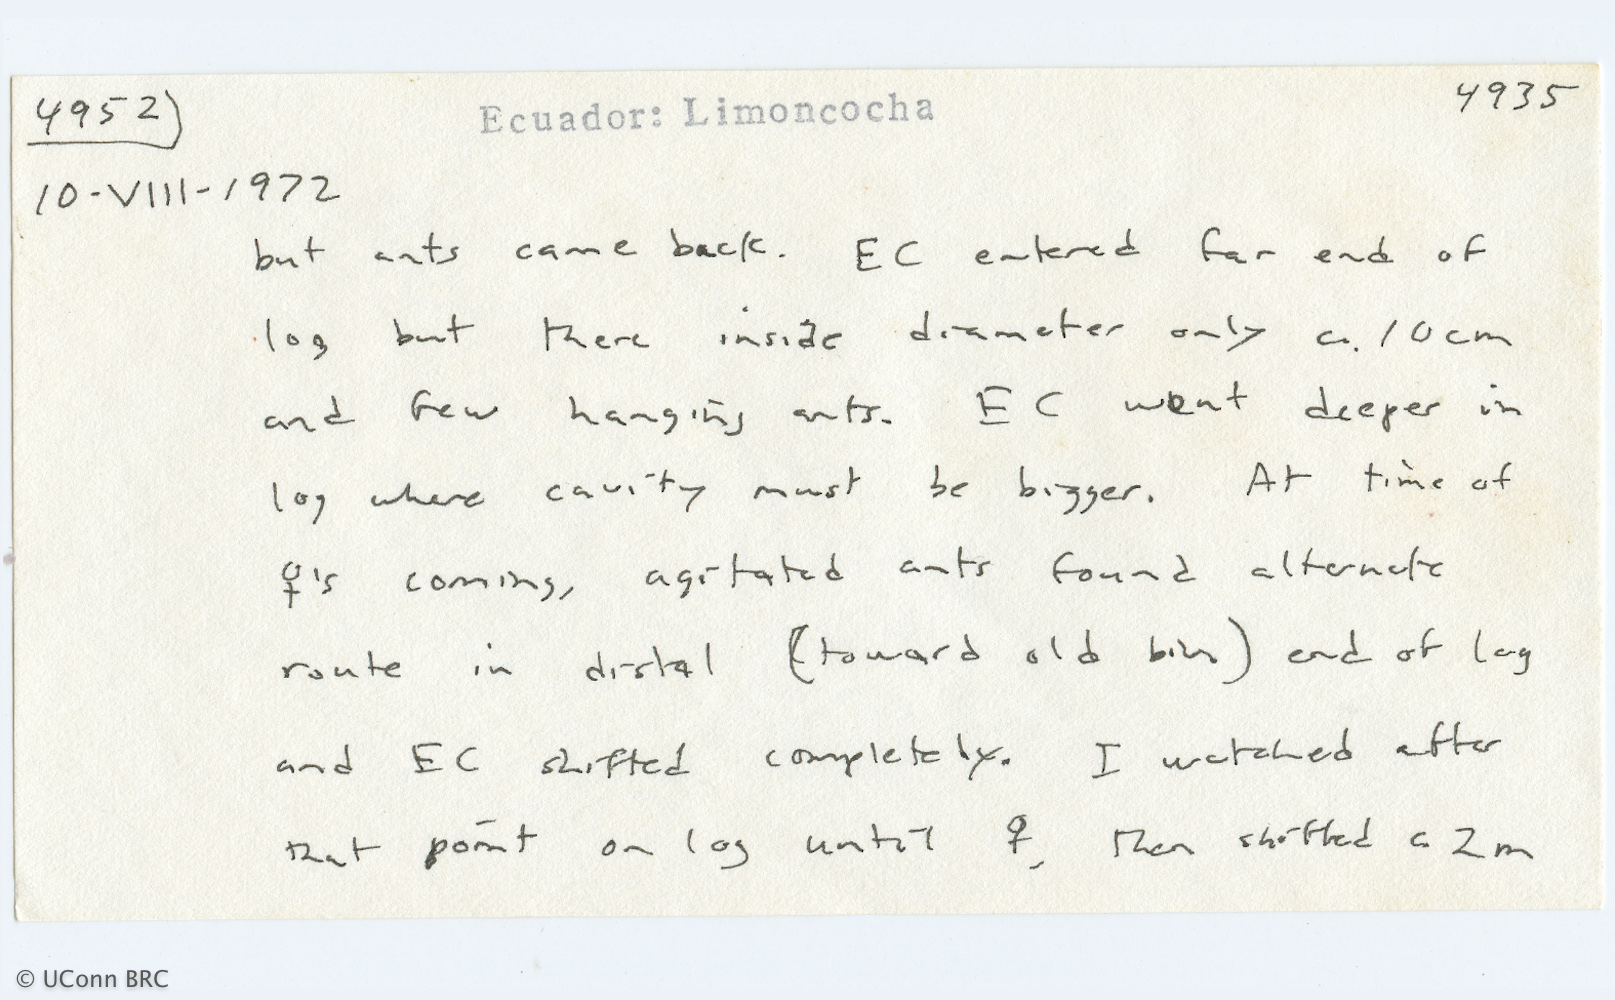 4952)
Ecuador: Limoncocha
4935
10-VIII-1972
but ants came back. EC entered far end of
log but there inside diameter only ca. 10cm
and few hanging ants. EC went deeper in
log where cavity must be bigger. At time of
♀'s coming, agitated ants found alternate
route in distal (toward old biv) end of log
and EC shifted completely. I watched after
that point on log until ♀, then shifted ca 2m
© UConn BRC